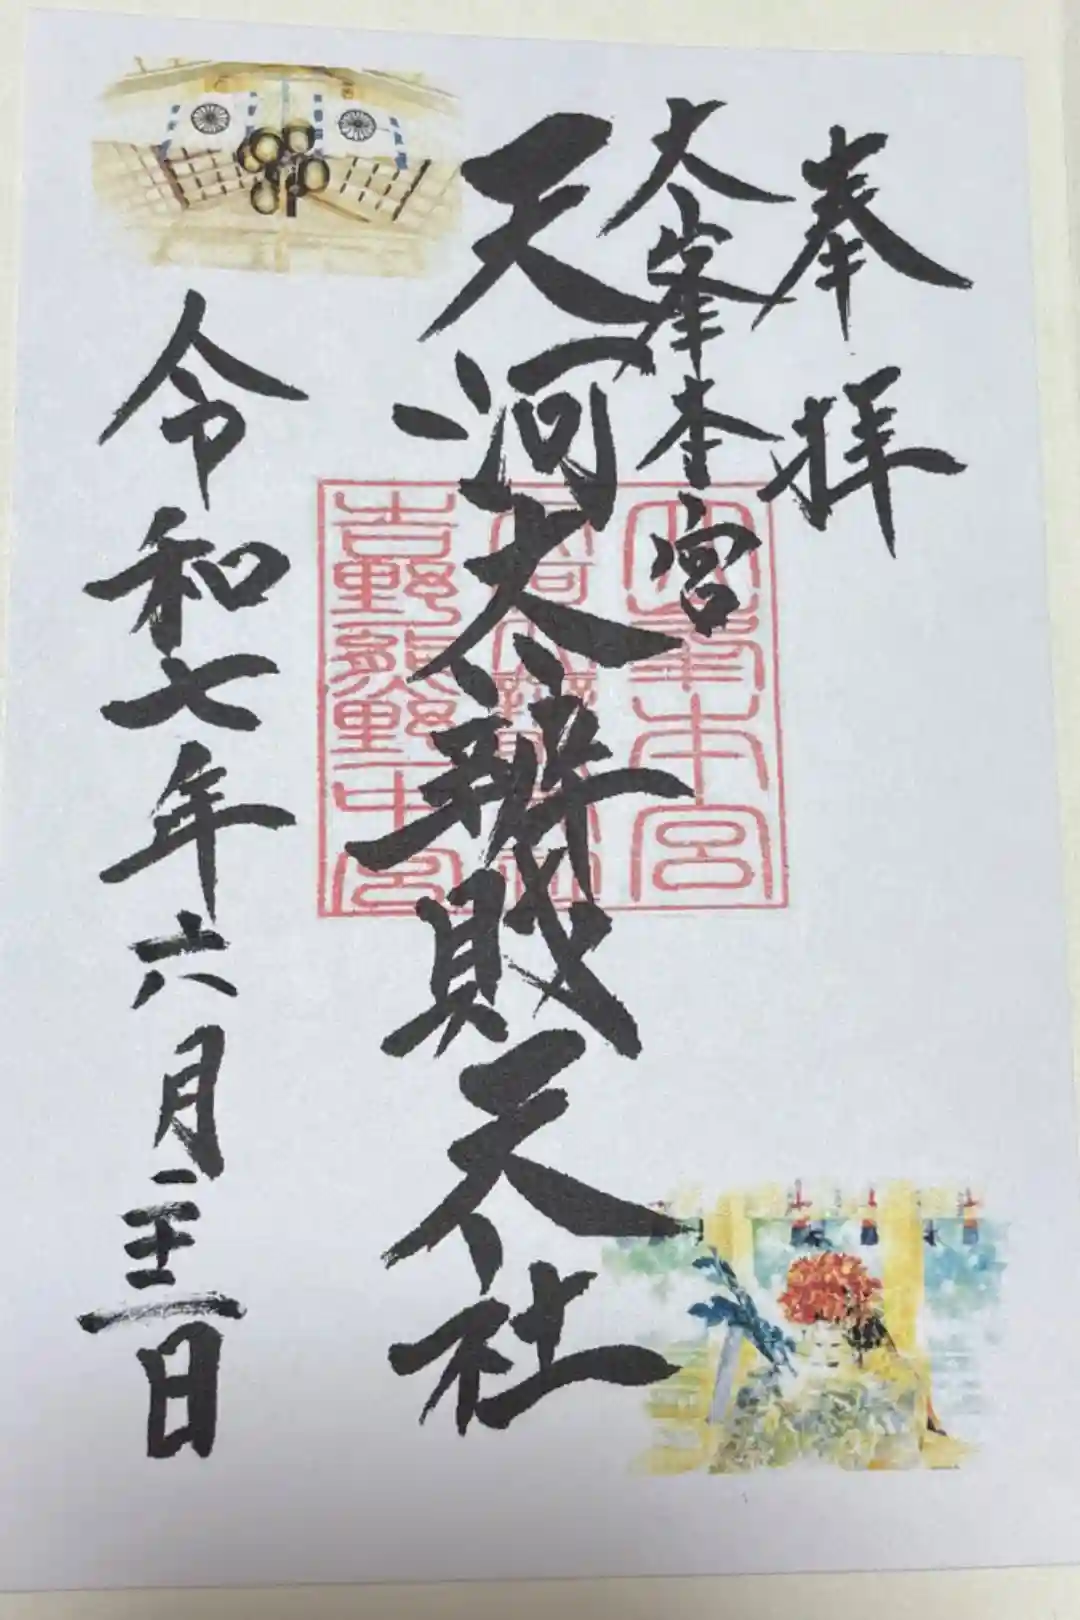 奉拝
大峯本宮
天河大辨財天社
令和七年六月二十二日
大峯本宮
吉野熊野中宮